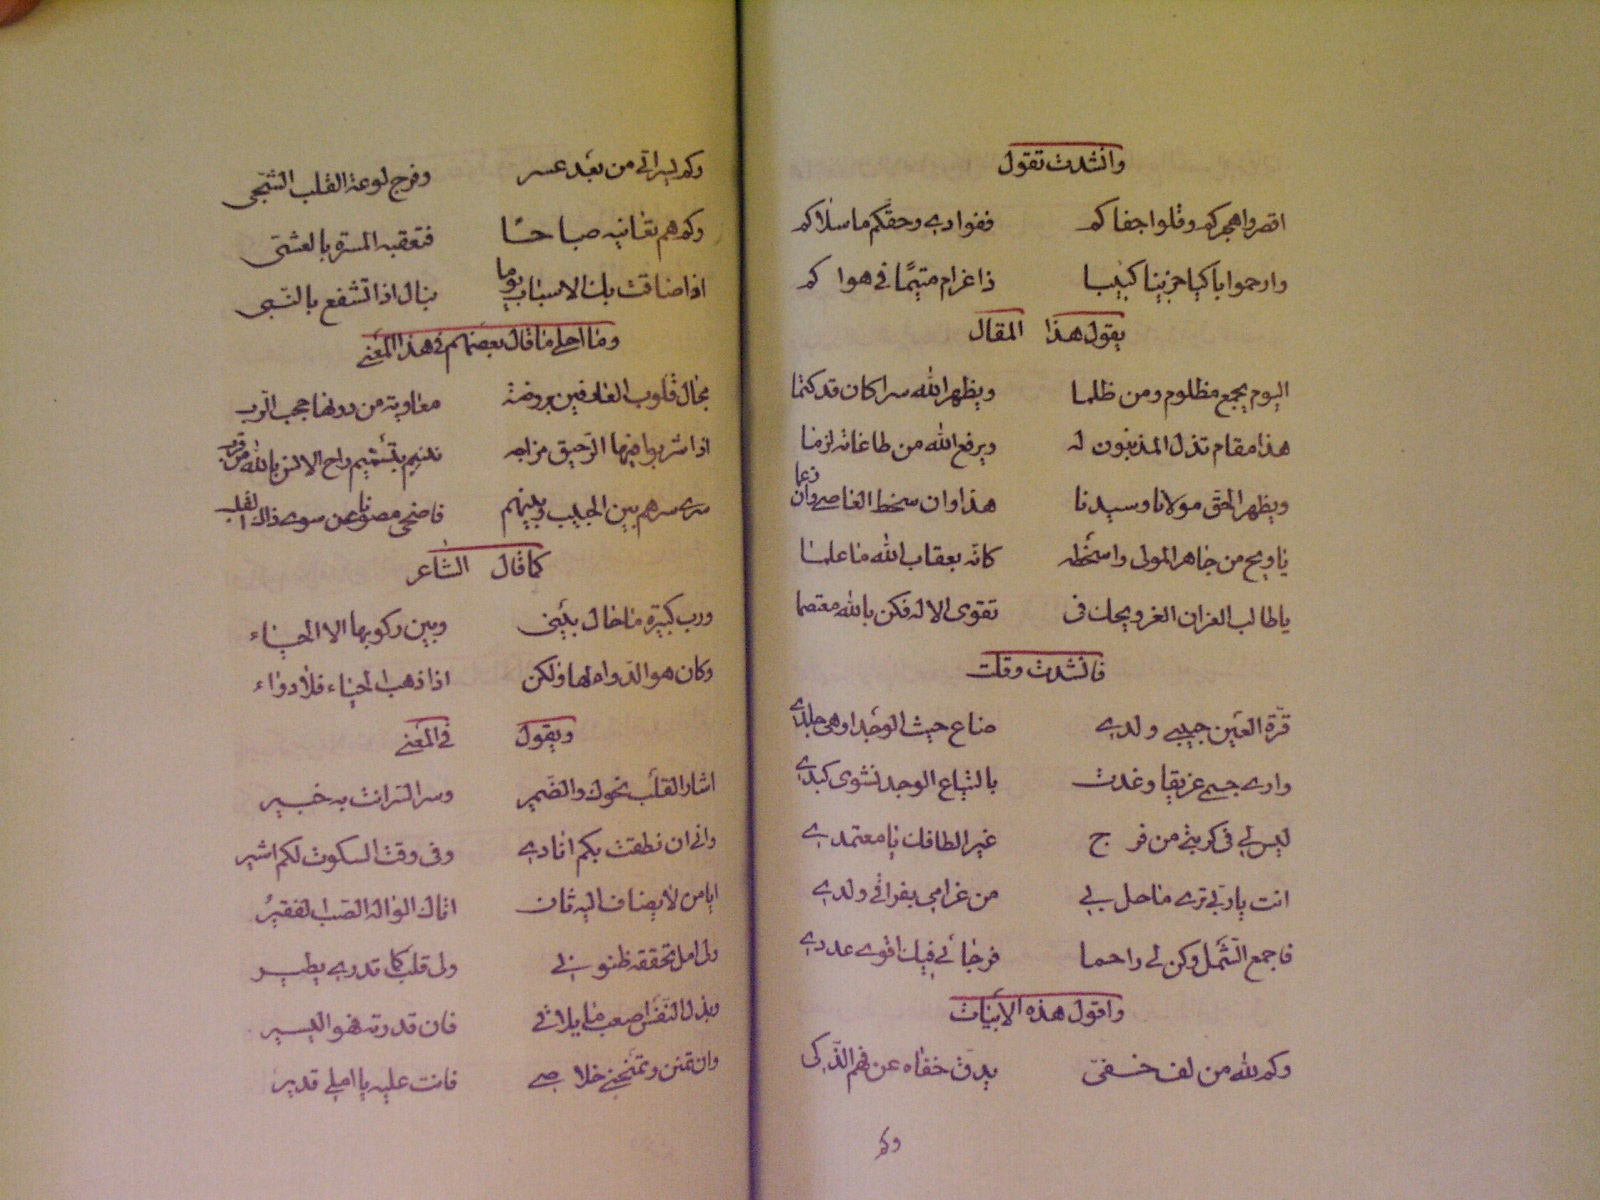 وانشدت تقول
اقصروا هجركم وقلوا جفاكم ففوادي وحقكم ما سلاكم
وارحموا باكيا حزينا كئيبا ذا غرام متيمًا في هواكم
يقول هذا المقال
اليوم يجمع مظلوم ومن ظلما ويظهر الله سرا كان قد كتما
هذا مقام تذل المذنبون له ويرفع الله من طاعاته لزما
ويظهر الحق مولانا وسيدنا هذا وان سخط العاصي وان رغما
يا ويح من جاهر المولى واسخطه كانه بعقاب الله ما علما
يا طالب العز ان العز ويحك في تقوى الاله فكن بالله معتصما
فانشدت وقلت
قرة العين حبيبي ولدي ضاع حيث الوجد اوهى جلدي
وارى جسمي غريقا وغدت بالتياع الوجد تشوى كبدي
ليس لي في كربتي من فرج غير الطافك يا معتمدي
انت يا ربي ترى ما حل بي من غرامي بفراقي ولدي
فاجمع الشمل وكن لي راحما فرجائي فيك اقوى عددي
واقول هذه الأبيات
وكم لله من لف خفيّ يدق خفاه عن فهم الذكي
وكم
وكم يسر اتى من بعد عسر وفرج لوعة القلب الشجي
وكم هم تعانيه صباحًا فتعقبه المسرة بالعشي
اذا ضاقت بك الاسباب يوما ينال اذا تشفع بالنبي
وما احلى ما قال بعضهم في هذا المعنى
مجال قلوب العارفين بروضة من دونها حجب الرب
اذا شربوا فيها الرحيق مزاجه بتسنيم راح الانس بالله من قرب
سرى سرهم بين الحبيب وبينهم فاضحى مصونا عن سوى ذاك القلب
كما قال الشاعر
ورب كبيرة ما حال بيني وبين ركوبها الا الحياء
وكان هو الدواء لها ولكن اذا ذهب الحياء فلا دواء
ويقول في المعنى
اشار القلب نحوك والضمير وسر السر انت به خبير
واني ان نطقت بكم انادي وفي وقت السكوت لكم اشير
ايا من لا يضاف اليه ثان اتاك الواله الصب الفقير
ولي امل تحققه ظنوني ولي قلب كما تدري يطير
وبذل النفس اصعب ما يلاقى فان قدرته فهو اليسير
وان تمنن وتمنحني خلاصي فانت عليه يا املي قدير